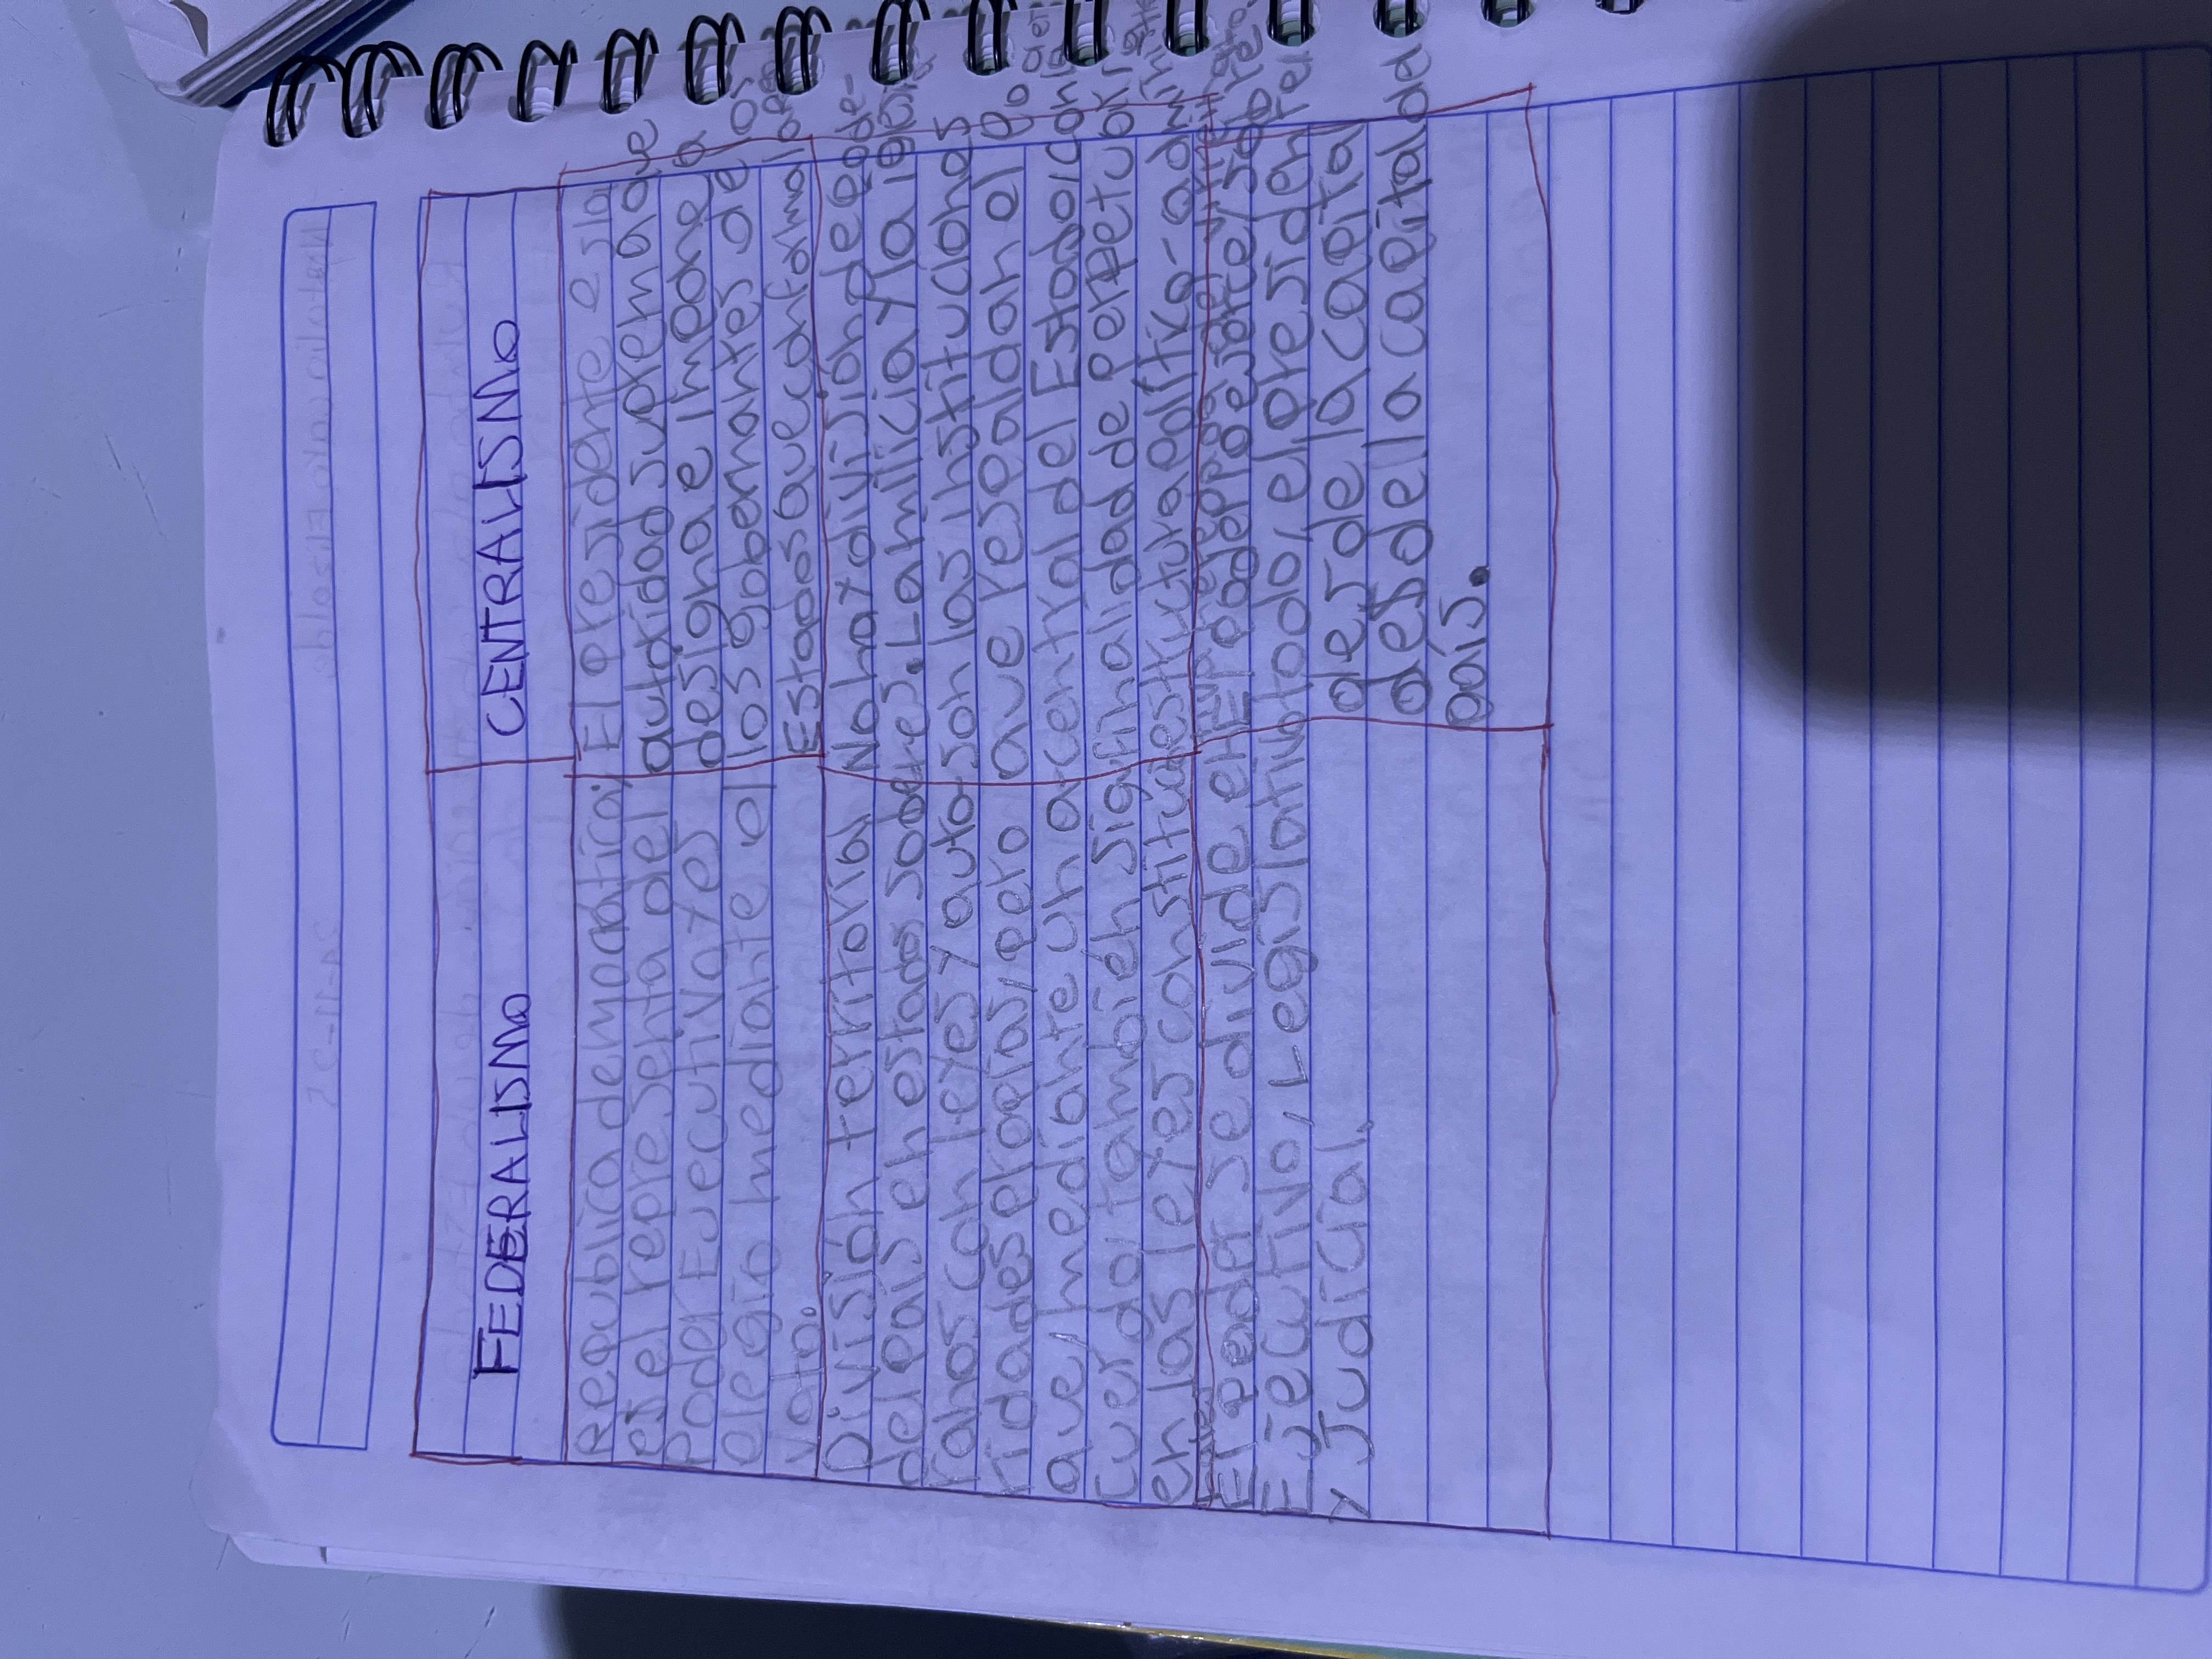 FEDERALISMO
CENTRALISMO
República democrática;
es el representa del
Poder Ejecutivo y es
elegio mediante el
voto.
El presidente es la
autoridad suprema que
designa e impone a
los gobernantes de los
Estados que conforman
División territorial
del País en estados sobe-
ranos con leyes y auto-
ridades propias, pero
que, mediante un a-
cuerdo, también sign
en las leyes constitucio
No hay división de pode-
res. La milicia y la iglesia
son las instituciones
que respaldan el Po
central del Estado, con la
finalidad de perpetu
estructura política-admin
El poder se divide en
Ejecutivo, Legislativo
y Judicial.
El poder lo ejerce, sobre
todo, el presiden
desde la capital
desde la capital del
país.